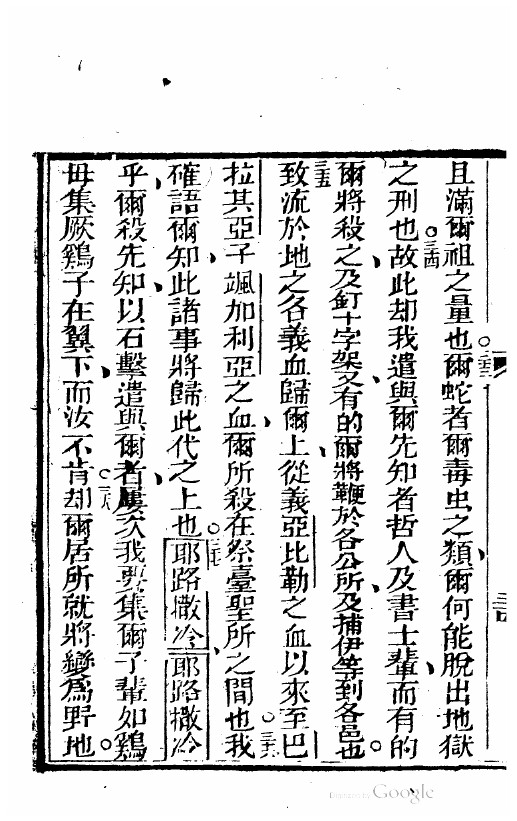 且滿爾祖之量也○三三爾蛇者爾毒虫之類爾何能脫出地獄
之刑也○三四故此却我遣與爾先知者哲人及書士輩而有的
爾將殺之及釘十字架又有的爾將鞭於各公所及捕伊等到各邑也○
三五致流於地之各義血歸爾上從義亞比勒之血以來至巴
拉其亞子颯加利亞之血爾所殺在祭臺聖所之間也○三六我
確語爾知此諸事將歸此代之上也○三七耶路撒冷耶路撒冷
乎爾殺先知以石擊遣與爾者屢次我要集爾子輩如鷄
毋集厥鷄子在翼下而汝不肯○三八却爾居所就將變爲野地○
Digitized by Google